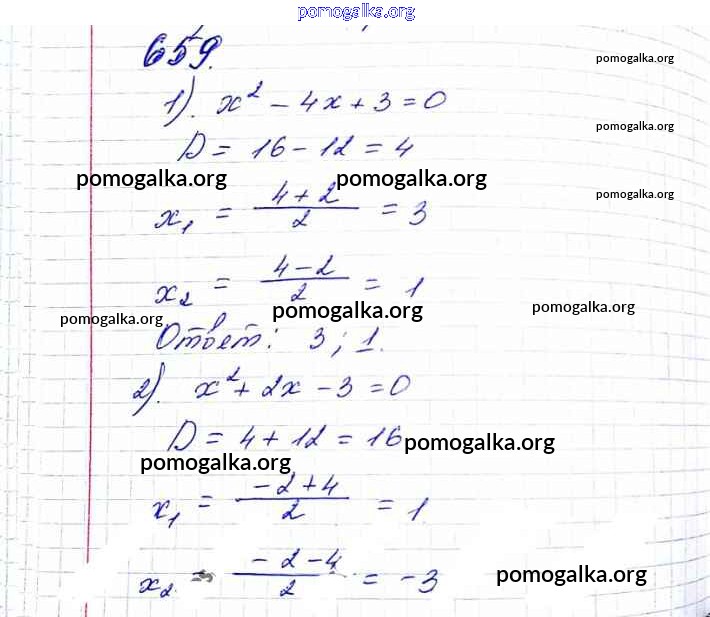 pomogalka.org
659.
pomogalka.org
1). x² - 4x + 3 = 0
pomogalka.org
D = 16 - 12 = 4
pomogalka.org pomogalka.org
pomogalka.org
x₁ = (4 + 2)/2 = 3
x₂ = (4 - 2)/2 = 1
pomogalka.org pomogalka.org
pomogalka.org
Ответ: 3; 1.
2). x² + 2x - 3 = 0
D = 4 + 12 = 16
pomogalka.org
pomogalka.org
x₁ = (-2 + 4)/2 = 1
x₂ = (-2 - 4)/2 = -3
pomogalka.org